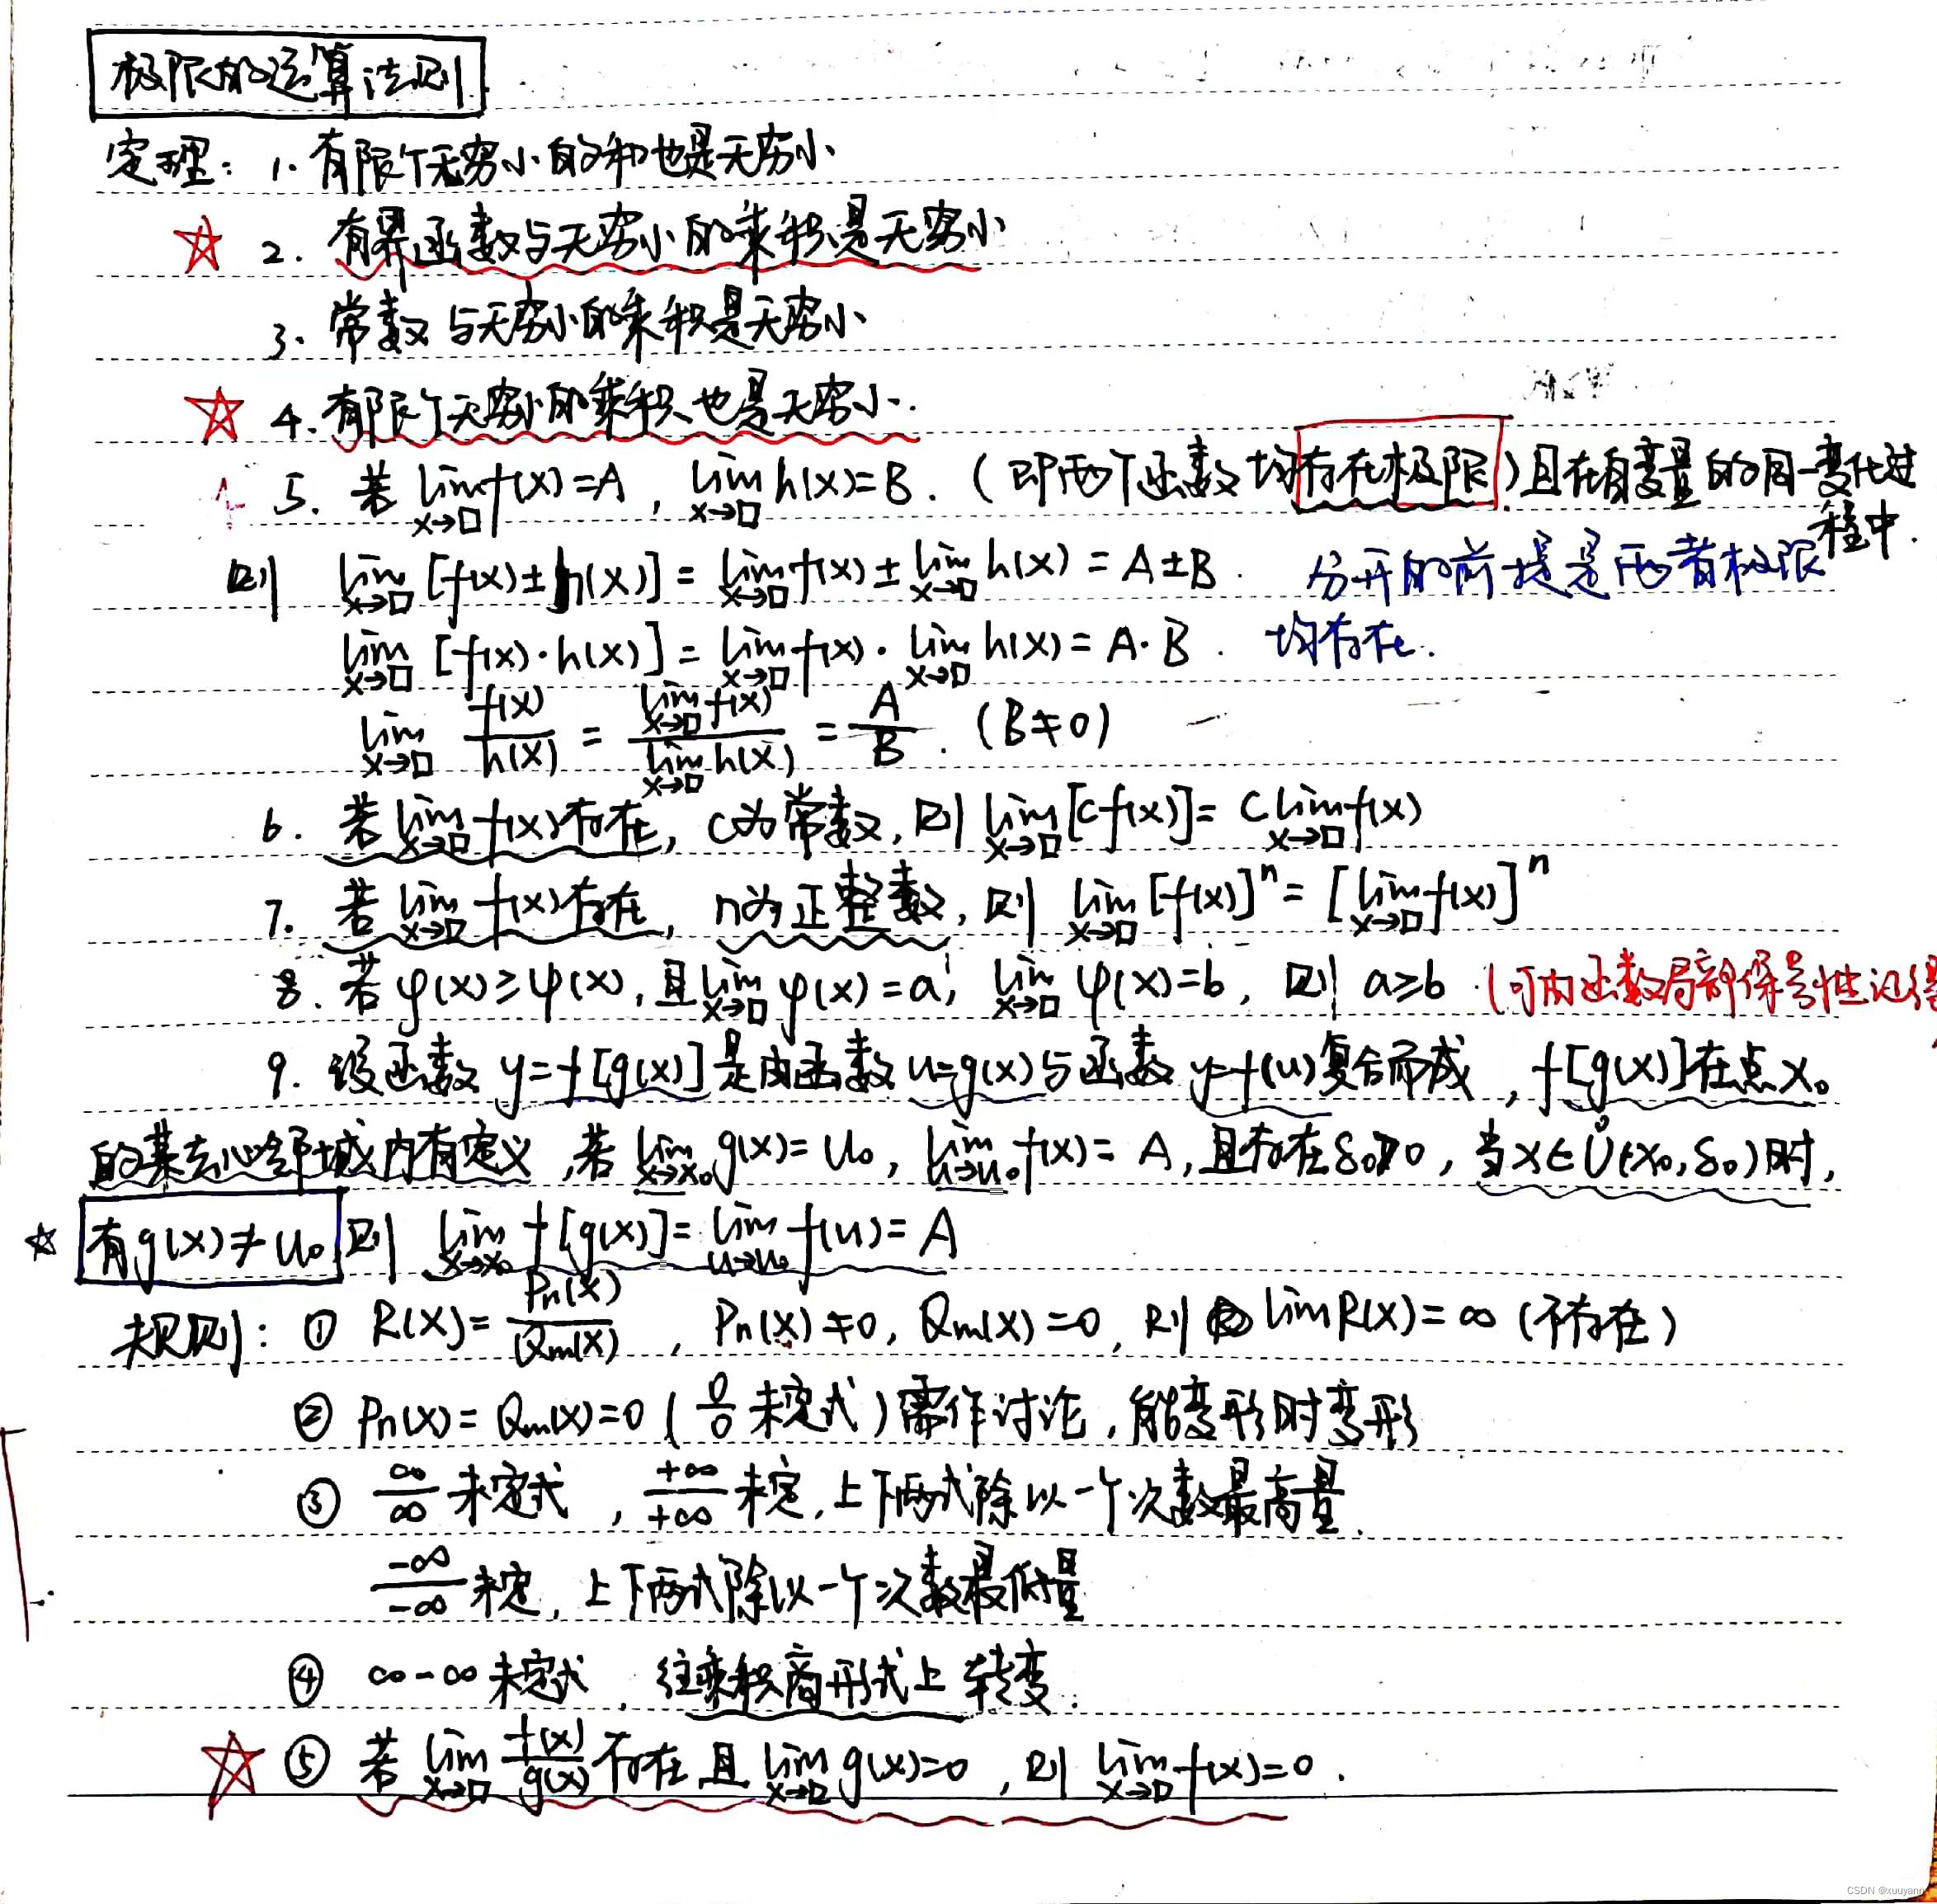 极限的运算法则
定理：1. 有限个无穷小的和也是无穷小
☆ 2. 有界函数与无穷小的乘积是无穷小
3. 常数与无穷小的乘积是无穷小
☆ 4. 有限个无穷小的乘积也是无穷小.
5. 若 lim_{x→□} f(x)=A , lim_{x→□} h(x)=B . (即两个函数均存在极限) 且在自变量的同一变化过
程中.
则 lim_{x→□} [f(x)±h(x)] = lim_{x→□} f(x) ± lim_{x→□} h(x) = A±B . 分开的前提是两者极限
lim_{x→□} [f(x)·h(x)] = lim_{x→□} f(x) · lim_{x→□} h(x) = A·B . 均存在.
lim_{x→□} f(x)/h(x) = lim_{x→□} f(x) / lim_{x→□} h(x) = A/B . (B≠0)
6. 若 lim_{x→□} f(x) 存在, C为常数, 则 lim_{x→□} [Cf(x)] = C lim_{x→□} f(x)
7. 若 lim_{x→□} f(x) 存在, n为正整数, 则 lim_{x→□} [f(x)]^n = [lim_{x→□} f(x)]^n
8. 若 φ(x)≥ψ(x), 且 lim_{x→□} φ(x)=a, lim_{x→□} ψ(x)=b, 则 a≥b (可由函数局部保号性证得
9. 设函数 y=f[g(x)] 是由函数 u=g(x) 与函数 y=f(u) 复合而成 , f[g(x)] 在点 x₀
的某去心邻域内有定义 ,若 lim_{x→x₀} g(x)=u₀, lim_{u→u₀} f(x)=A, 且存在δ₀>0, 当x∈Ů(x₀,δ₀)时,
☆ 有g(x)≠u₀ 则 lim_{x→x₀} f[g(x)] = lim_{u→u₀} f(u) = A
规则: ① R(x)= Pn(x)/Qm(x) , Pn(x)≠0, Qm(x)=0, 则 lim R(x)=∞ (不存在)
② Pn(x)=Qm(x)=0 (0/0 未定式) 需作讨论, 能变形时变形
③ ∞/∞ 未定式 , +∞/+∞ 未定, 上下两式除以一个次数最高量.
-∞/-∞ 未定, 上下两式除以一个次数最低量
④ ∞-∞ 未定式 , 往乘积商形式上转变.
☆ ⑤ 若 lim_{x→□} f(x)/g(x) 存在 且 lim_{x→□} g(x)=0 , 则 lim_{x→□} f(x)=0 .
CSDN @xuuyann